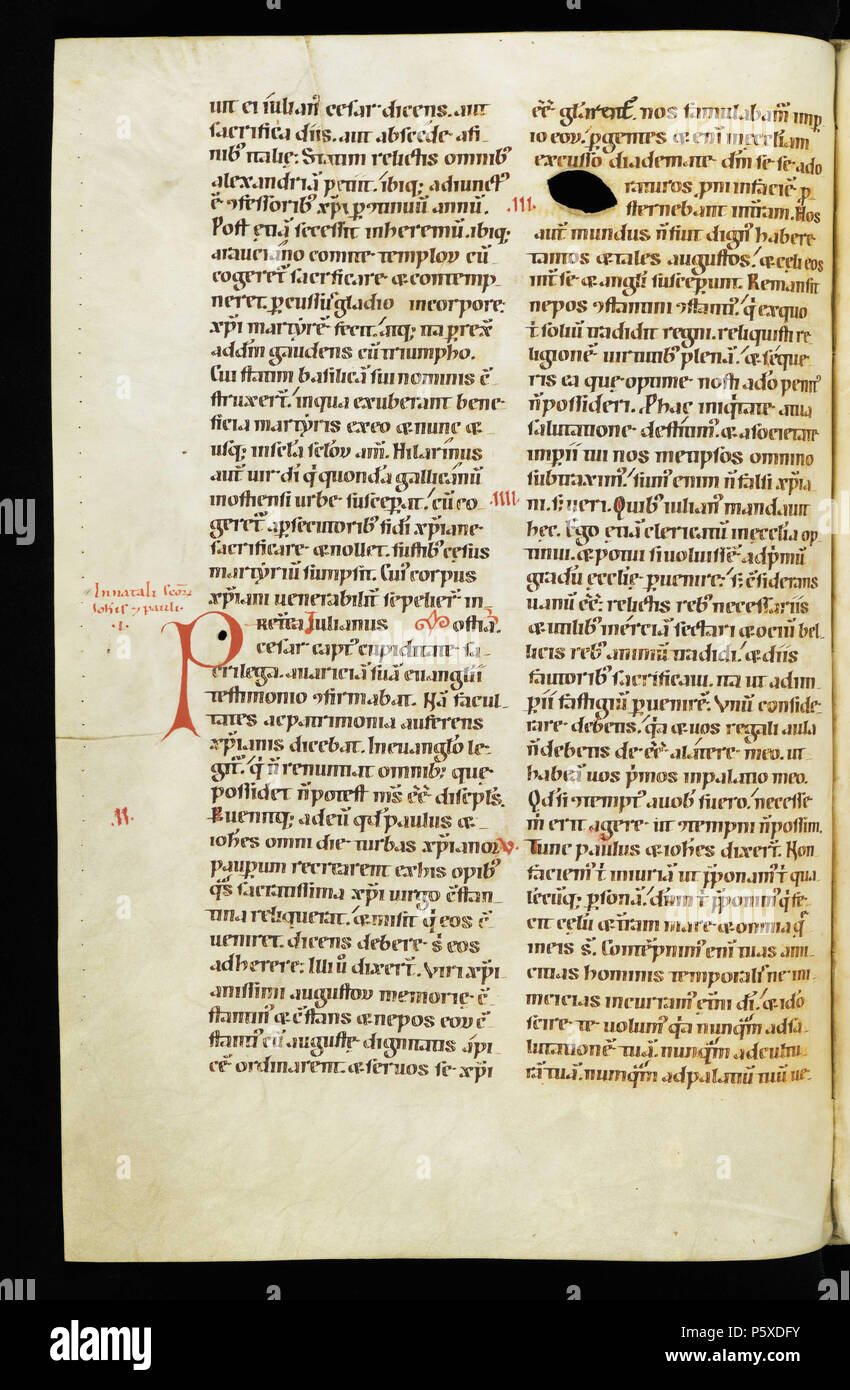 uit ei iulian᷒ cesar dicens. aut
sacrifica diis. aut abscede a fi
nib᷒ italię. Statim relictis omnib᷒
alexandriā petiit. ibiq; adiunct᷒
ē ↄfessorib᷒ xp̄i ꝑ ↄtinuū annū.
Post etiā secessit in heremū. ibiq;
a rauciano comite temploꝝ cū
cogeret᷒ sacrificare & contemp
neret. ꝑcussus gladio in corpore
xp̄i martyrē fecit. itaq; ita ꝑrex̄
ad dn̄m gaudens cū triumpho.
Cui statim basilicā sui nominis ↄ̄
struxert̄. in qua exuberant bene
ficia martyris ex eo & nunc &
usq; in sc̄la sc̄loꝝ am̄. Hilarinus
aut̄ uir dī q̇ quondā gallicanū
in ostiensi urbe suscepat. cū co
geret᷒ a ꝑsecutorib᷒ fidi xp̄iane
sacrificare & nollet. fustib᷒ cęsus
martyriū sumpsit. Cui᷒ corpus
xp̄iani uenerabilit̄ sepelier̄t in
In natali scōꝝ
ioh̄is & pauli
.I.
Pretea Iulianus ostia.
cesar capt᷒ cupiditate sa
crilega. auariciā suā euanglii
testimonio ↄfirmabat. Nā facul
tates ac patrimonia auferens
xp̄ianis dicebat. In euanglo le
git᷒. q̇ n̄ renuntiat omnib; quę
possidet n̄ potest m̄s eē̄ discipls.
.II.
Ruenitq; ad eū qd̄ paulus &
ioh̄es omni die turbas xp̄ianoꝝ
pauꝑum recrearent ex his opib᷒
q̄s sacratissima xp̄i uirgo ↄ̄stan
tina reliquerat. & misit q̇ eos ↄ̄
ueniret. dicens debere s̄ eos
adherere. Illi ů dixert̄. Viri xp̄i
anissimi augustoꝝ memorie ↄ̄
stantin᷒ & ↄ̄stans & nepos eoꝝ ↄ̄
stanti᷒ cū auguste dignitatis api
cē ordinarent. & seruos se xp̄i
eē̄ gl̄arent᷒. nos famulabam᷒ imp
io eoꝝ. ꝑgentes & eni᷒ in ecc̄liam
excusso diademate dn̄m se se ado
raturos. pni in faciē ꝑ
.III.
sternebant in t̄ram. Hos
aut̄ mundus n̄ fuit dign᷒ habere
tamos & tales augustos. & cęli eos
int̄ se & angli susceperunt. Remansit
nepos ↄstantini ↄstanti᷒. q̇ ex quo
t̄ soluū tradidit regni. reliquisti re
ligionē uirtutib᷒ plenā. & seque
ris ea quę optime nosti a dō penit᷒
n̄ possideri. Ꝓ hac iniq̇tate a tua
salutatione destitim᷒. & a societate
impii tui nos metipsos omnino
subtraxim᷒. Sum᷒ enim n̄ falsi xp̄ia
.IIII.
ni. si ueri. Quib᷒ iulian᷒ mandauit
hęc. Ego etiā clericatū in ecc̄lia op
tinui. & potui si uoluissē ad p̄mū
gradū ecc̄lię ꝑuenire. si ↄ̄siderans
uanū eē̄. relictis reb᷒ necessariis
& utilib᷒ in̄ciā sectari & ociū bel
licis reb᷒ animū tradidi. & diis
fautorib᷒ sacrificaui. ita ut ad im
ꝑii fastigiū ꝑuenirē. Vnū conside
rare debens. q̇a & uos regali aula
n̄ debens deeē̄ a lat̄ere meo. ut
habeā uos p̄mos in palatio meo.
Qd̄ si ↄtempt᷒ a uob᷒ fuero. necesse
m̄ erit agere. ut ↄtempni n̄ possim.
.V.
Tunc paulus & ioh̄es dixert̄. Non
facien t̄ iniuriā ut p̄ponam᷒ t̄ qua
lēcūq; psonā. dn̄m t̄ p̄ponim᷒ q̇ fe
cit cęlū & t̄ram mare & omnia q̄
in eis s̄. Contēpnim᷒ eni᷒ tuas ami
citias hominis temporalis. ne ini
micicias incurram᷒ et̄ni dī. & idō
scire te uolum᷒ q̇a nunq̄m ad sa
lutationē tuā. nunq̄m ad cultu
rā tuā. numq̄m ad palatiū tuū ue
alamy
alamy
Image ID: P5XDFY
www.alamy.com